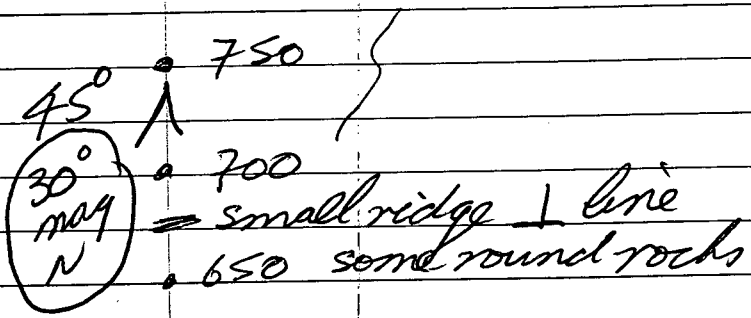 750
45°
700
30°
mag = small ridge ⊥ line
N
650 some round rocks